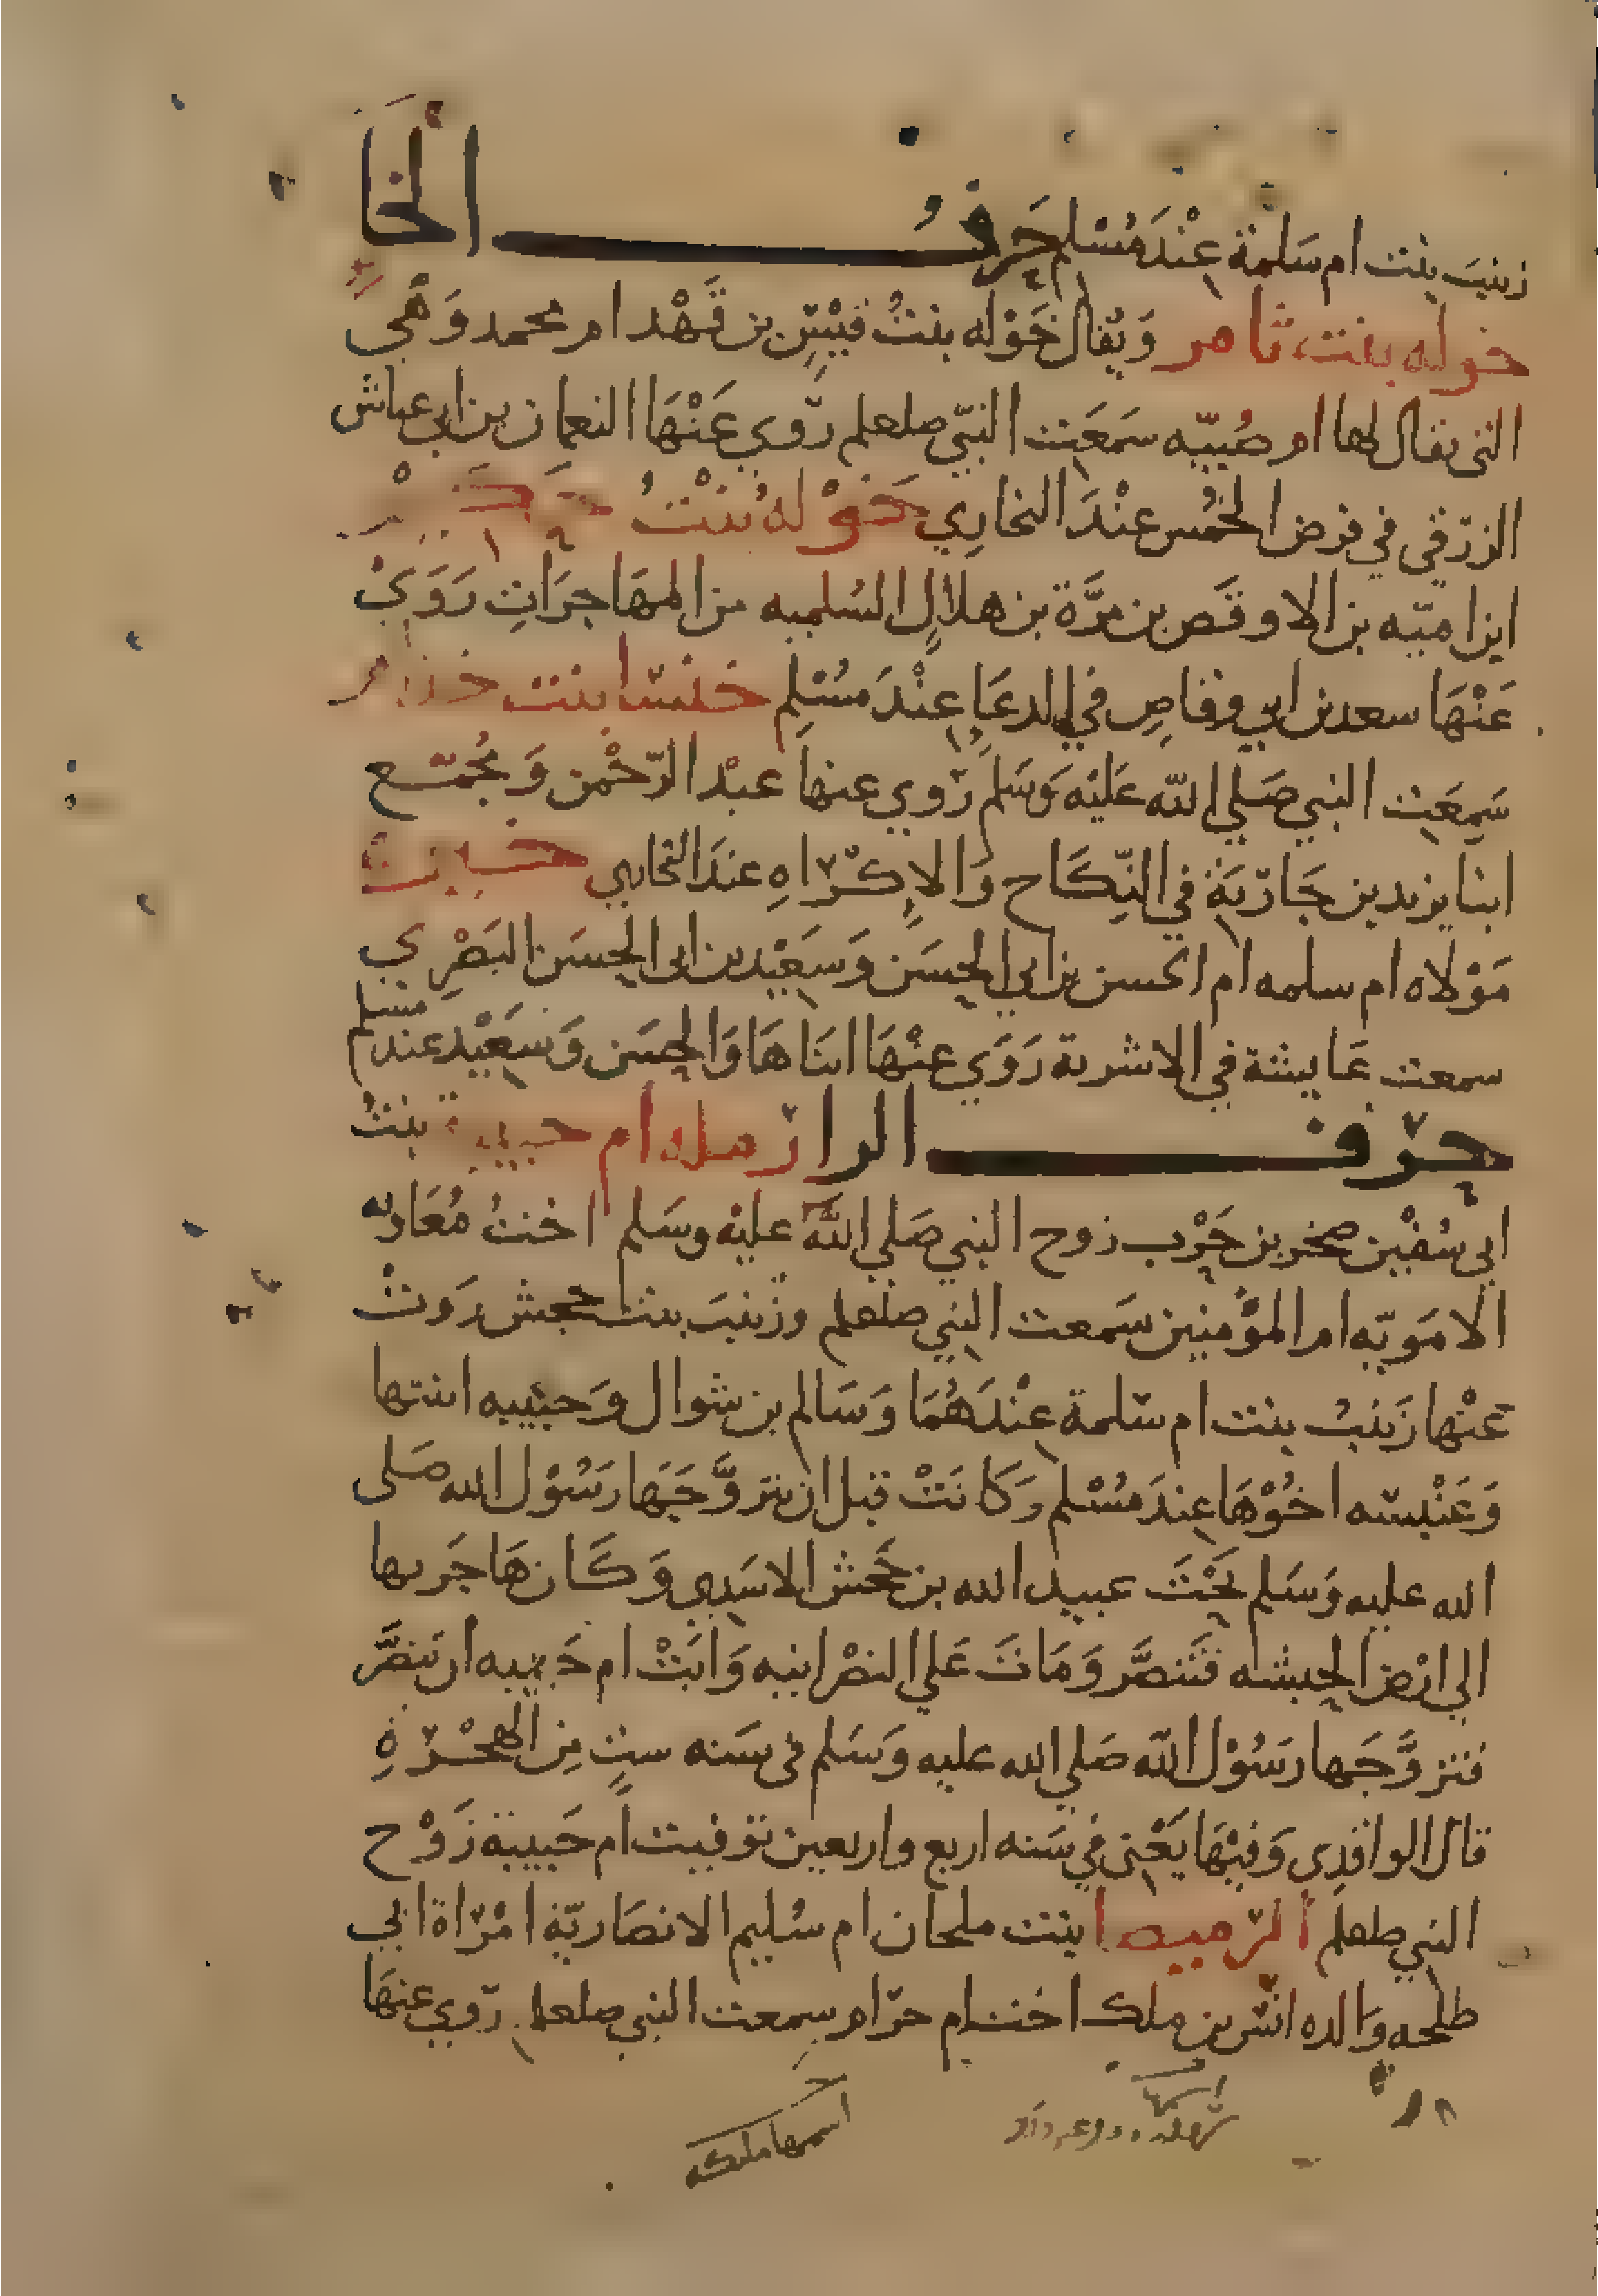 زينب بنت ام سلمة عِنْدَ مُسْلم حَرفُ الخَا
خوله بنت ثامر وَيُقال خَوْله بنتُ قَيْسِ بن قَهْد ام محمد وَهي
التى يقال لها ام صُبيّه سمَعَت النبّي صلعلم رَوي عَنْهَا النعمان بن ابي عياش
الزرَقي في فرض الخُمُس عنْدَ البخاري خَوْله بُنتُ حَكيْم
ابن اميّه بن الاوقَص بن مرَّة بن هلالٍ السُلميه من المهَاجرَاتِ رَوَيْ
عَنْهَا سعد بن ابي وقاصٍ في الدعَا عِنْدَ مسُلِم خنسا بنت خذام
سَمِعَتِ النبي صَلي الله عَليْه وَسَلم رَوي عنها عبْد الرّحْمن وَ مُجمّع
ابنا يزيد بن جَارَيَة في النِّكَاح وَالإكْرَاهِ عندَ البخاري خيرة
مَوْلاه ام سلمه ام الحسن بن ابي الحِسَن وَسَعِيْد بن ابي الحِسَن البَصْرِي
سمعت عَايشة في الاشربة رَوَي عنْهَا ابنَاهَا وَالحِسَن وَسَعِيْد عند مسلم
حرَف الرا رَمله ام حبيبة بنتُ
ابي سُفْين صخر بن حَرْب زوج النبي صَلي الله عليْه وسَلم اختُ مُعَاويه
الامَويّه ام المؤمنين سَمعت النبي صلعلم وزَينبَ بنت جحش رَوتْ
عَنْها زَينبُ بنت ام سَلمة عِنْدَهُمَا وَسَالم بن شوال وَحبَيبه ابنتها
وَعَنْبسَه اخُوْهَا عِندَ مُسْلم وَكَانَتْ قبل ان يتزوَّجَهَا رَسُوْل الله صَلى
الله عليه وَسَلم تَحْتَ عبيد الله بن جَحْش الاسَدِي وَكَان هَاجَر بها
الي ارْض الحِبشه فَتَنصَّر وَمَاتَ عَلي النصْرانيه وَابَتْ ام حَبيبه ان تتنصَّر
فتزوَّجَها رسَوُل الله صَلي الله عليه وَسَلم فى سَنه ستٍ مِن الهجْرَةِ
قال الواقدِى وَفِيْهَا يَعْنى في سَنه اربع واربعين توفيت ام حَبيبة زَوْج
النبي صلعلم الرَميصا بنت ملحان ام سُليم الانصَاريّة امْرَاة ابي
طلحه وَالده انس بن ملك اخت ام حرَام سمِعت النبي صلعلم رَوي عنهَا
اسمها مليكه